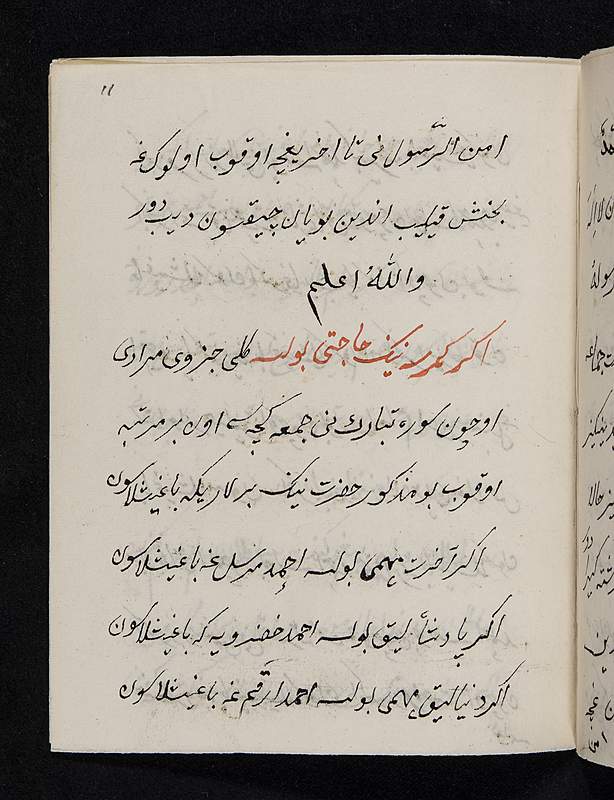 ۱۱
امن الرّسول نی تا اخریغچه اوقوب اولوک غه
بخش قیلیب اندین بویان چیقسون دیب دور
واللهُ اعلم
اکر کمرسه نیک حاجتی بولسه کلی جزوی مرادی
اوچون سوره تبارک نی جمعه کچه سی اون بر مرتبه
اوقوب بو مذکور حضرت نیک بر لاریکه باغیشلاسون
اکر آخرت مهمی بولسه احمد مرسل غه باغیشلاسون
اکر پادشاٰه لیق بولسه احمد خضرویه که باغیشلاسون
اکر دنیالیق مهمی بولسه احمد ارقم غه باغیشلاسون